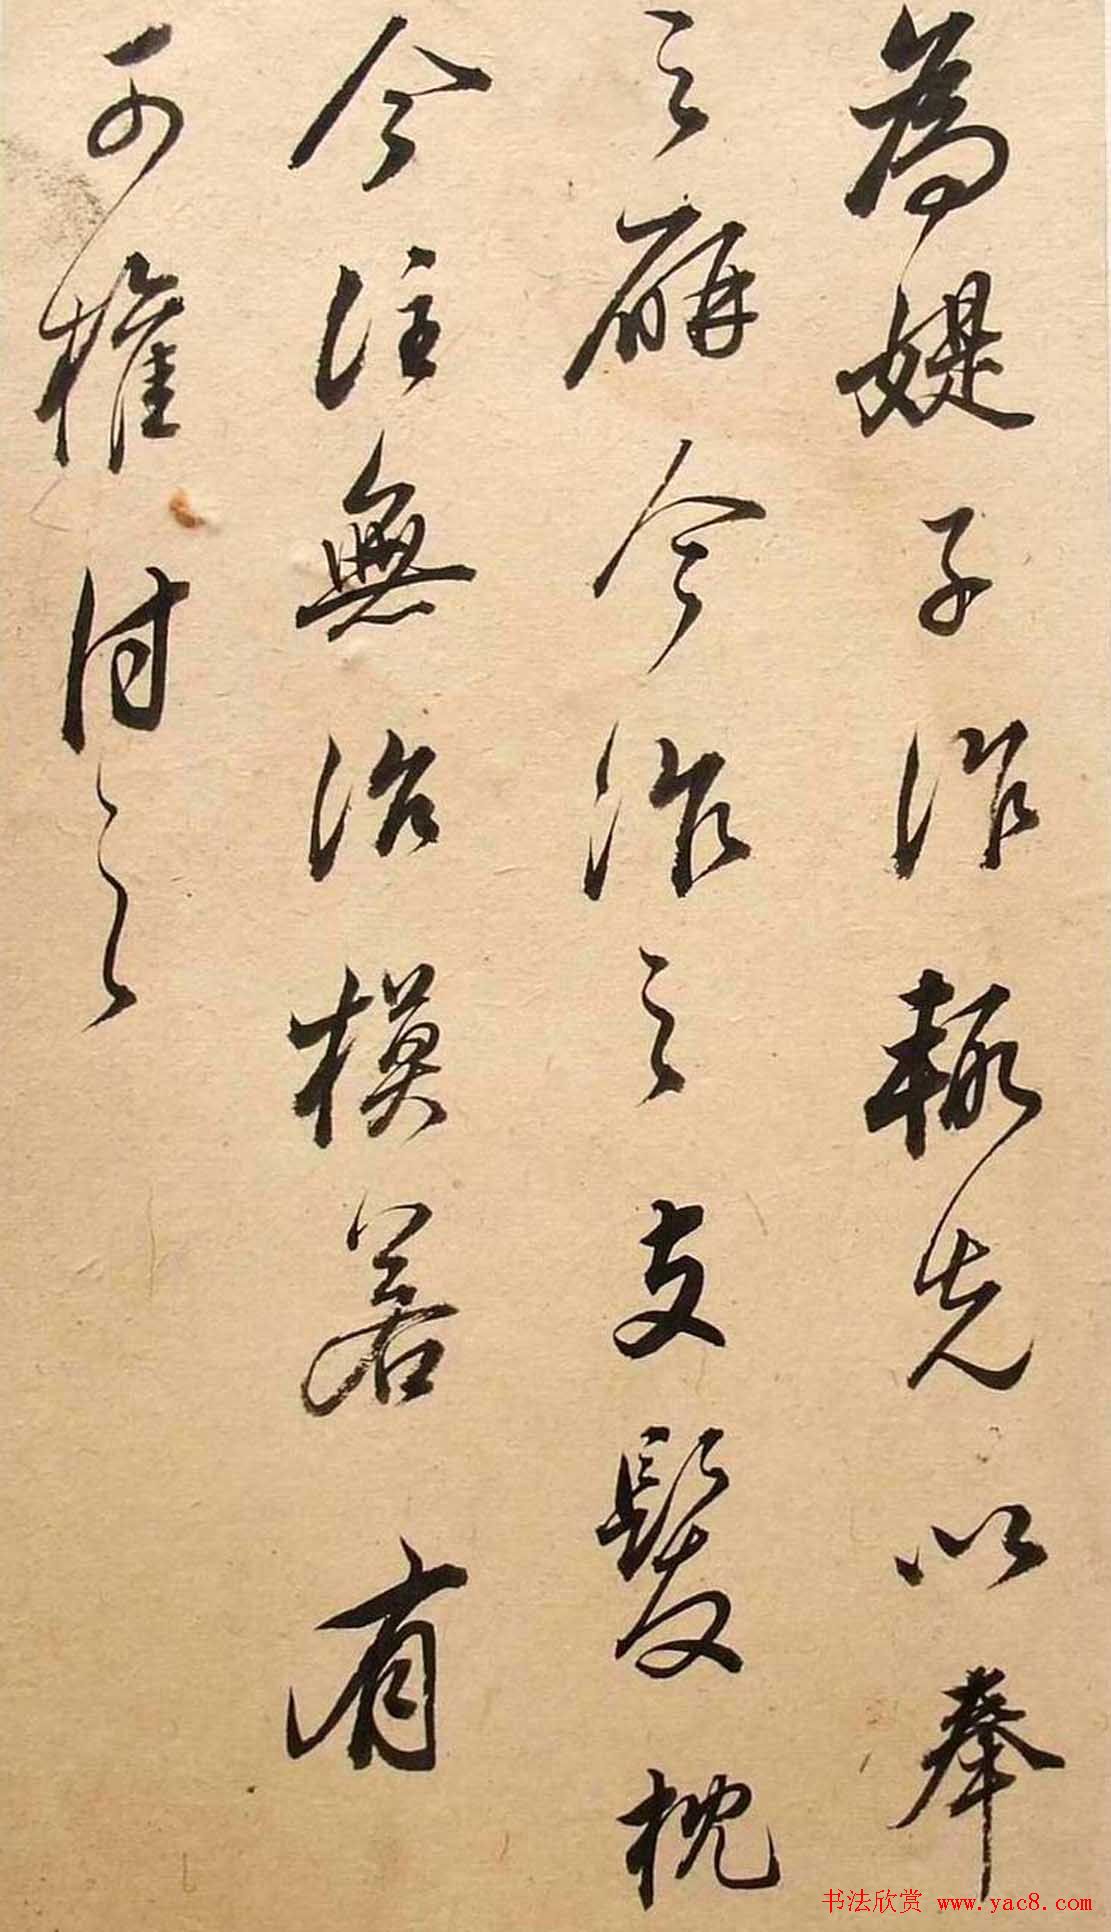 為媞子作輒先以奉
之今作之支髮枕
今注無治模若有
可權付之
书法欣赏 www.yac8.com